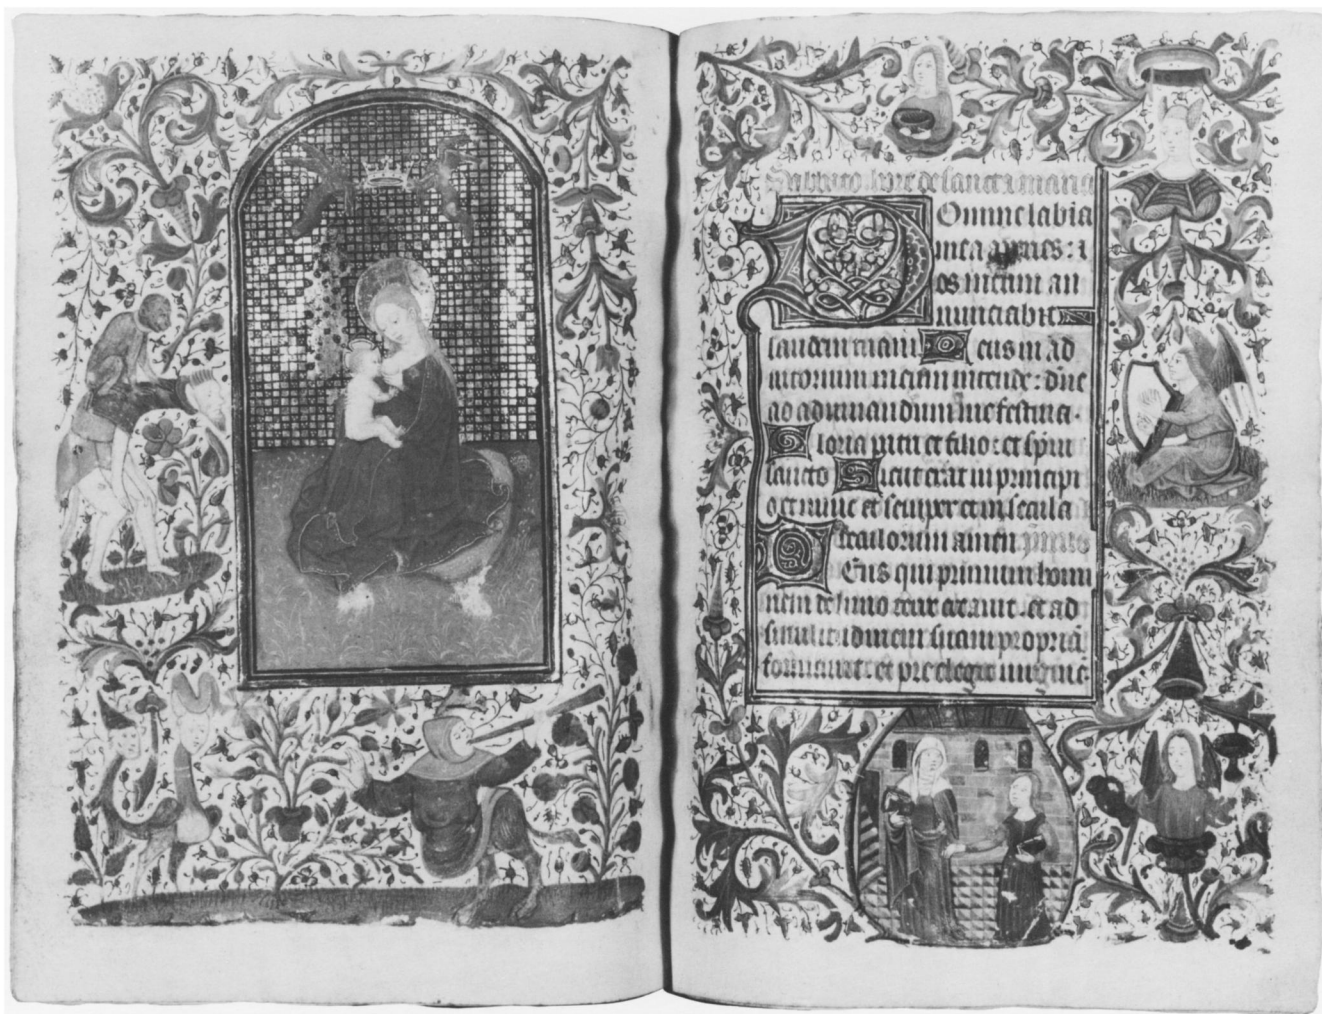 Sabbato hore de sancta maria
Omine labia
mea aperies: ⁊
os meum an
nunciabit
laudem tuam Deus in ad
iutorium meum intende: dñe
ad adiuuandum me festina.
Gloria patri et filio: et spiri
sancto Sicut erat in principi
o et nunc et semper et in secula
seculorum amen.
Deus qui primum homi
nem de limo creauit. et ad
similitudinem suam propria
formauit: et